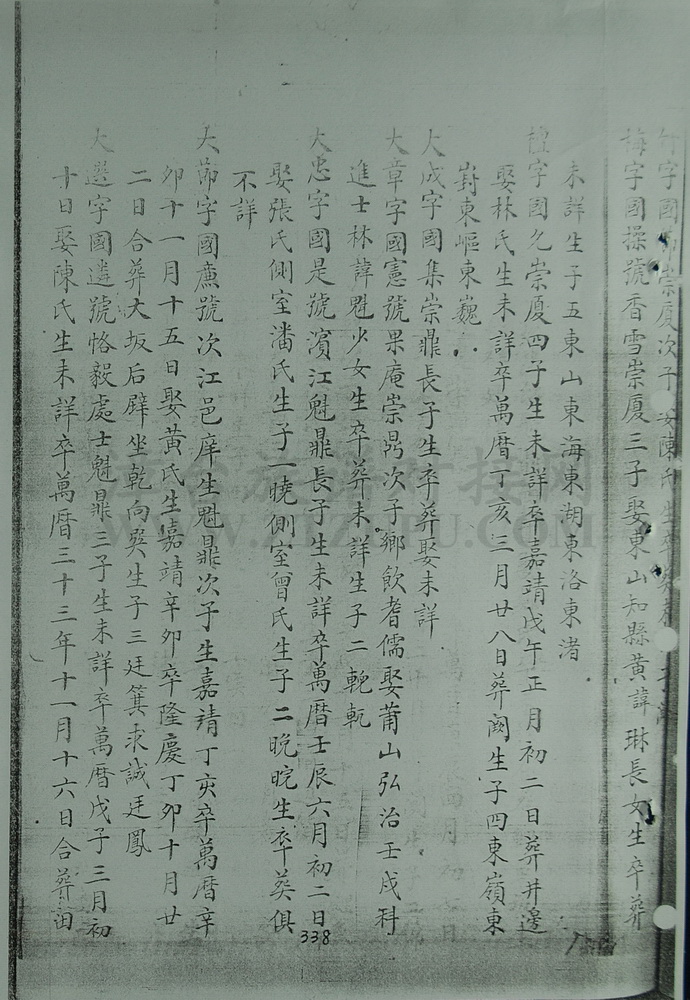 字國 崇厦次子 陳氏生卒葬
梅字國操號香雪崇厦三子娶東山知縣黃諱琳長女生卒葬
未詳生子五東山東海東湖東洛東渚
檀字國久崇厦四子生未詳卒嘉靖戊午正月初二日葬井邊
娶林氏生未詳卒萬曆丁亥三月廿八日葬 生子四東嶺東
㟳東嶇東巍
大成字國集崇鼎長子生卒葬娶未詳
大章字國憲號果庵崇鼎次子鄉飲耆儒娶莆山弘治壬戌科
進士林諱魁少女生卒葬未詳生子二
大忠字國是號濱江魁鼎長子生未詳卒萬曆壬辰六月初二日
娶張氏側室潘氏生子一曉側室曾氏生子二晚晥生卒葬俱
不詳
大節字國 號次江邑庠生魁鼎次子生嘉靖丁亥卒萬曆辛
卯十一月十五日娶黃氏生嘉靖辛卯卒隆慶丁卯十月廿
二日合葬大坂后 坐乾向巽生子三廷箕 誠廷鳳
大選字國遴號恪毅處士魁鼎三子生未詳卒萬曆戊子三月初
十日娶陳氏生未詳卒萬曆三十三年十一月十六日合葬
338
江氏族譜對接網
WWW.JTZUPU.COM